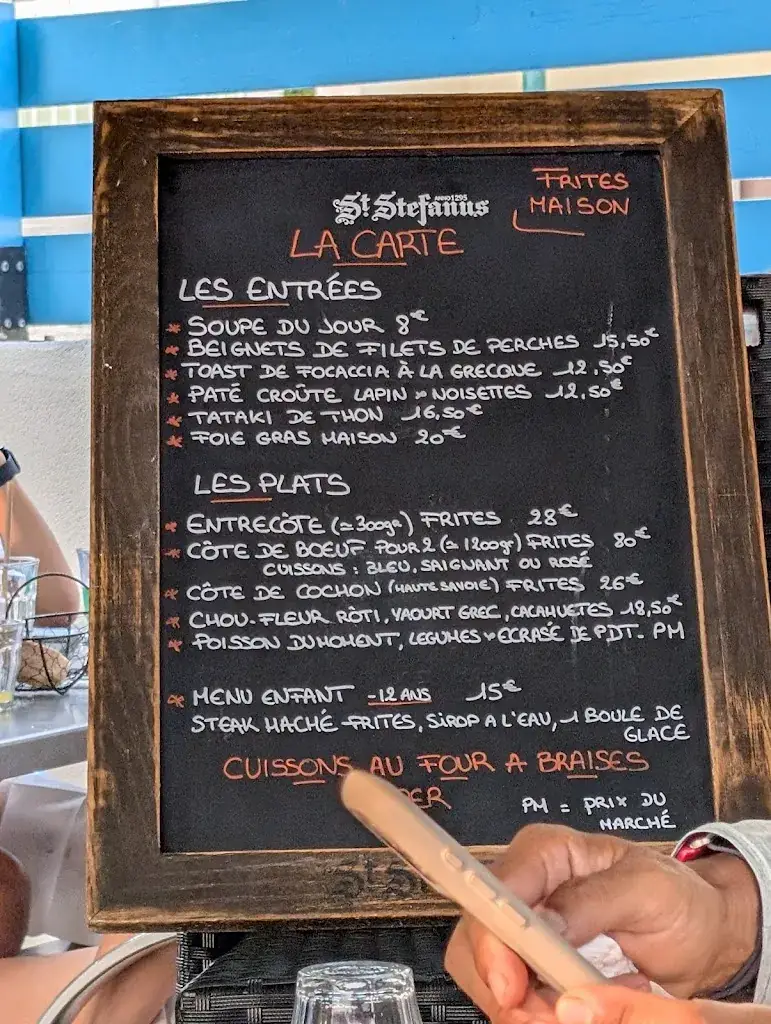 FRITES
MAISON
ANNO 1295
St Stefanus
LA CARTE
LES ENTRÉES
* SOUPE DU JOUR 8€
* BEIGNETS DE FILETS DE PERCHES 15,50€
* TOAST DE FOCACCIA À LA GRECQUE 12,50€
* PATÉ CROÛTE LAPIN & NOISETTES 12,50€
* TATAKI DE THON 16,50€
* FOIE GRAS MAISON 20€
LES PLATS
* ENTRECÔTE (≃300gr) FRITES 28€
* CÔTE DE BOEUF POUR 2 (≃1200gr) FRITES 80€
CUISSONS : BLEU, SAIGNANT OU ROSÉ
* CÔTE DE COCHON (HAUTE SAVOIE) FRITES 26€
* CHOU-FLEUR RÔTI, YAOURT GREC, CACAHUETES 18,50€
* POISSON DU MOMENT, LEGUMES & ECRASÉ DE PDT. PM
* MENU ENFANT -12 ANS 15€
STEAK HACHÉ-FRITES, SIROP A L'EAU, 1 BOULE DE
GLACE
CUISSONS AU FOUR A BRAISES
PM = PRIX DU
MARCHÉ